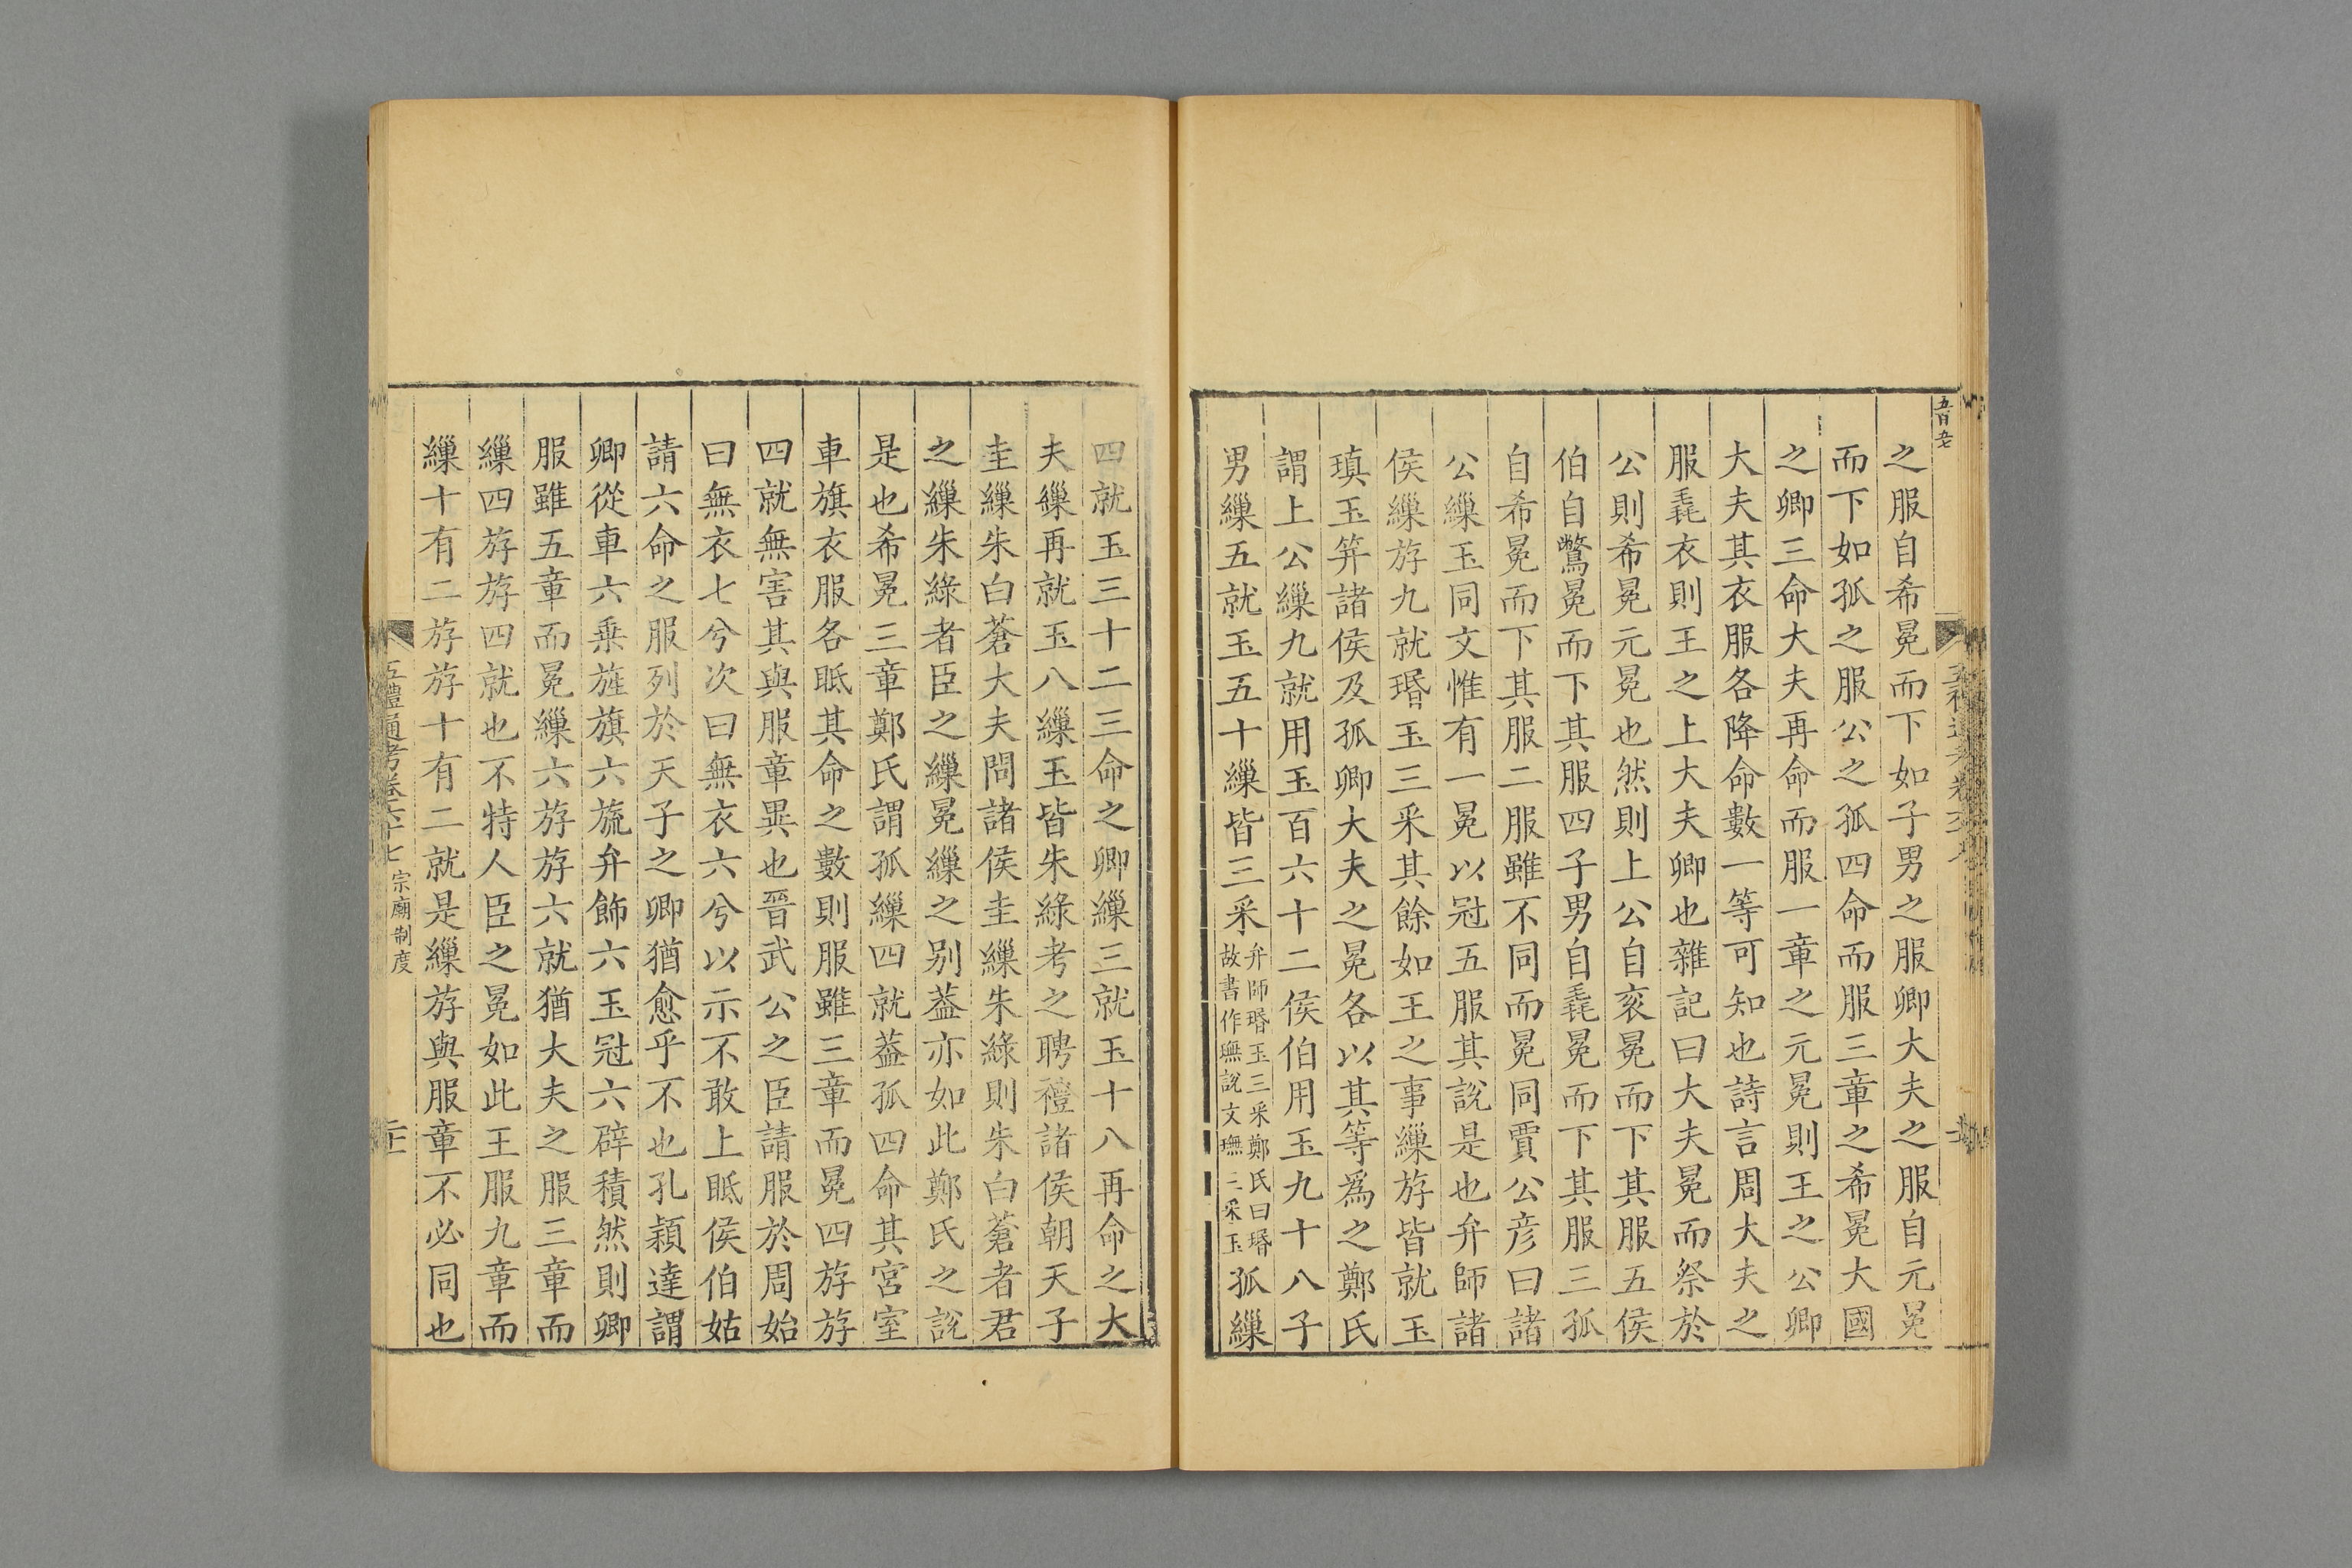 之服自希冕而下如子男之服卿大夫之服自元冕
而下如孤之服公之孤四命而服三章之希冕大國
之卿三命大夫再命而服一章之元冕則王之公卿
大夫其衣服各降命數一等可知也詩言周大夫之
服毳衣則王之上大夫卿也雜記曰大夫冕而祭於
公則希冕元冕也然則上公自衮冕而下其服五侯
伯自鷩冕而下其服四子男自毳冕而下其服三孤
自希冕而下其服二服雖不同而冕同賈公彦曰諸
公繅玉同文惟有一冕以冠五服其說是也弁師諸
侯繅斿九就瑉玉三采其餘如王之事繅斿皆就玉
瑱玉筓諸侯及孤卿大夫之冕各以其等爲之鄭氏
謂上公繅九就用玉百六十二侯伯用玉九十八子
男繅五就玉五十繅皆三采
弁師瑉玉三采鄭氏曰瑉
故書作璑說文璑三采玉
孤繅
四就玉三十二三命之卿繅三就玉十八再命之大
夫繅再就玉八繅玉皆朱綠考之聘禮諸侯朝天子
圭繅朱白蒼大夫問諸侯圭繅朱綠則朱白蒼者君
之繅朱綠者臣之繅冕繅之别葢亦如此鄭氏之說
是也希冕三章鄭氏謂孤繅四就葢孤四命其宮室
車旗衣服各眡其命之數則服雖三章而冕四斿斿
四就無害其與服章異也晉武公之臣請服於周始
曰無衣七兮次曰無衣六兮以示不敢上眡侯伯姑
請六命之服列於天子之卿猶愈乎不也孔穎達謂
卿從車六乗旌旗六旒弁飾六玉冠六辟積然則卿
服雖五章而冕繅六斿斿六就猶大夫之服三章而
繅四斿斿四就也不特人臣之冕如此王服九章而
繅十有二斿斿十有二就是繅斿與服章不必同也
五禮通考卷六十七 宗廟制度